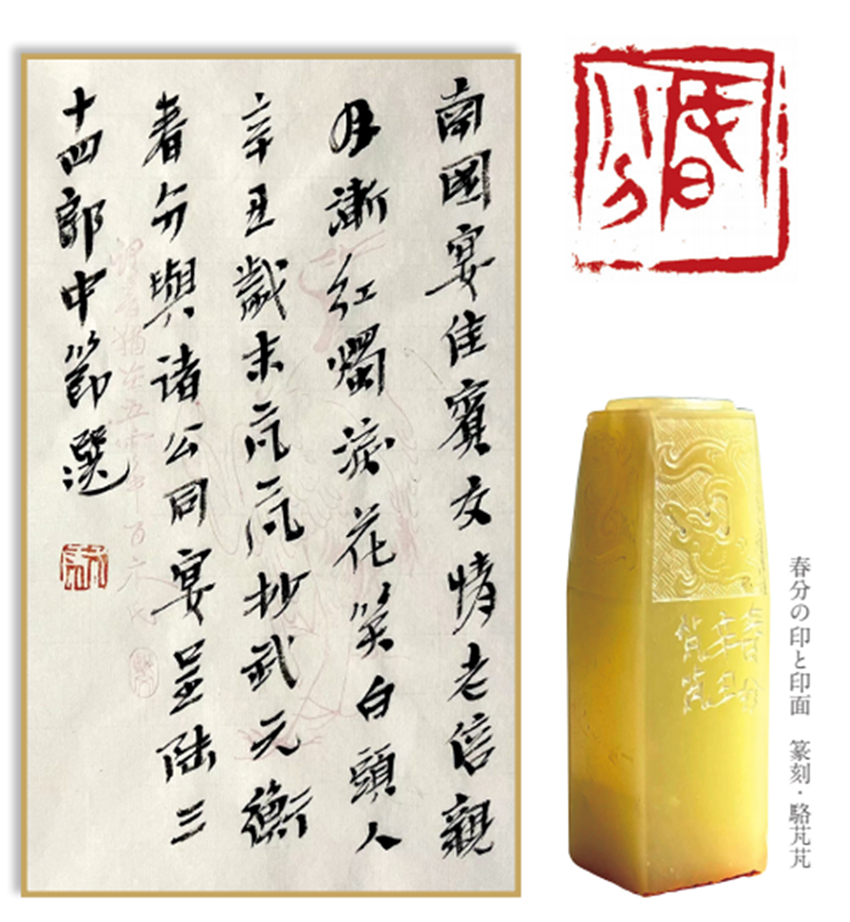 南國宴佳賓交情老倍親
月漸紅燭淚花笑白頭人
辛丑歲末芃芃抄武元衡
春分與諸公同宴呈陸三
十四郎中節選
春分
春分
辛丑
芃芃
春分の印と印面 篆刻・駱芃芃